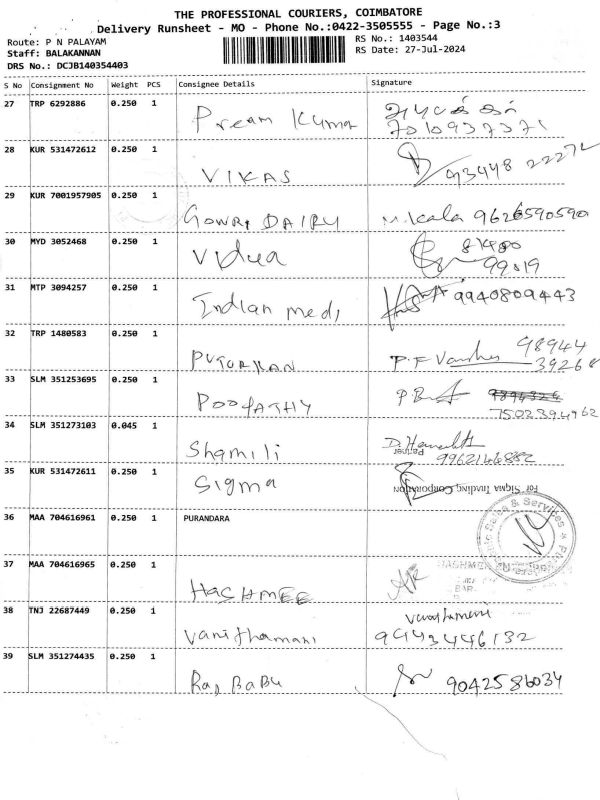 THE PROFESSIONAL COURIERS, COIMBATORE
Delivery Runsheet - MO - Phone No.:0422-3505555 - Page No.:3
Route: P N PALAYAM
RS No.: 1403544
Staff: BALAKANNAN
RS Date: 27-Jul-2024
DRS No.: DCJB140354403
S No Consignment No Weight PCS Consignee Details Signature
27 TRP 6292886 0.250 1 Pream Kumar
28 KUR 531472612 0.250 1 VIKAS
29 KUR 7001957905 0.250 1 Gowri DAIRY M.Kala 9626590590
30 MYD 3052468 0.250 1 Vidya
99019
31 MTP 3094257 0.250 1 Indian medi 9940809443
32 TRP 1480583 0.250 1 98944
39268
33 SLM 351253695 0.250 1
7502394962
34 SLM 351273103 0.045 1 Shamili
Partner
9962146882
35 KUR 531472611 0.250 1 Sigma
For Sigma Trading Corporation
36 MAA 704616961 0.250 1 PURANDARA
Sales & Services
37 MAA 704616965 0.250 1 HASHMEE
38 TNJ 22687449 0.250 1 Vanithamani
9443446132
39 SLM 351274435 0.250 1 Raj BABU 9042586034